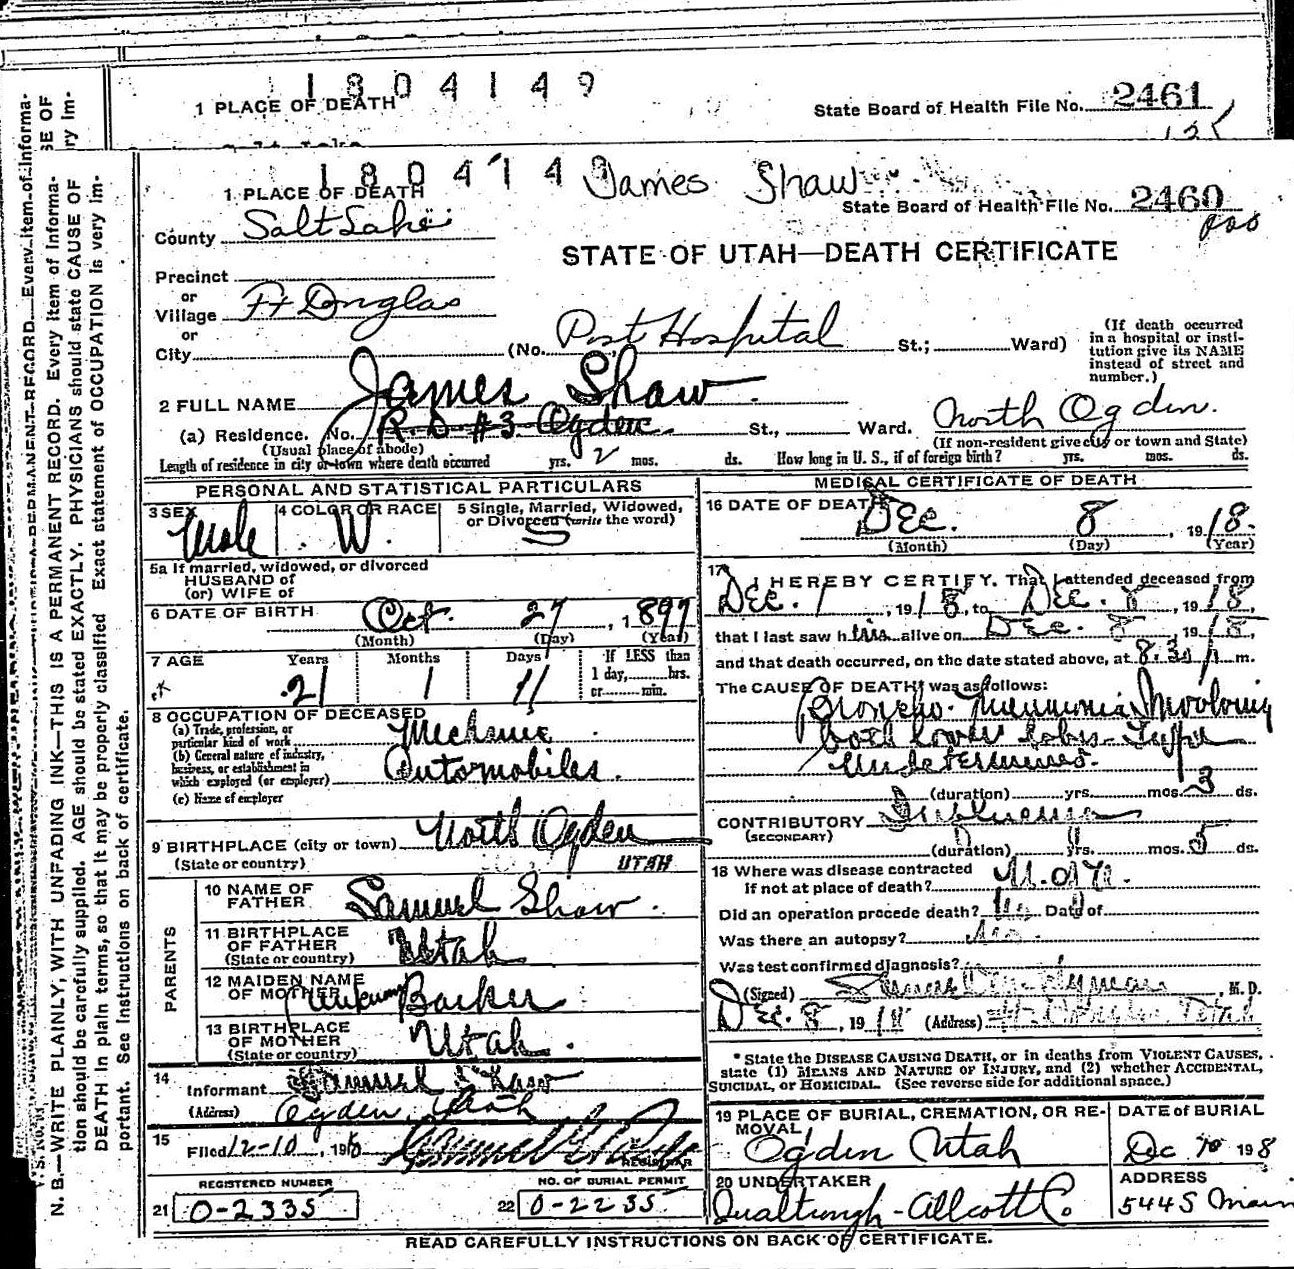 1804149
1 PLACE OF DEATH
State Board of Health File No. 2461
180414
James Shaw
1 PLACE OF DEATH
State Board of Health File No. 2460
County Salt Lake
STATE OF UTAH—DEATH CERTIFICATE
Precinct
or
Village Ft Douglas
or
City (No. Post Hospital St.; Ward)
(If death occurred in a hospital or institution give its NAME instead of street and number.)
2 FULL NAME James Shaw
(a) Residence. No. R.D. #3 Ogden St., Ward. North Ogden.
(Usual place of abode) (If non-resident give city or town and State)
Length of residence in city or town where death occurred yrs. 2 mos. ds. How long in U. S., if of foreign birth? yrs. mos. ds.
PERSONAL AND STATISTICAL PARTICULARS
3 SEX Male
4 COLOR OR RACE W.
5 Single, Married, Widowed, or Divorced (write the word) S
5a If married, widowed, or divorced
HUSBAND of
(or) WIFE of
6 DATE OF BIRTH Oct. 27, 1897
(Month) (Day) (Year)
7 AGE Years Months Days If LESS than
21 1 11 1 day, hrs.
or min.
8 OCCUPATION OF DECEASED
(a) Trade, profession, or particular kind of work Mechanic
(b) General nature of industry, business, or establishment in which employed (or employer) Automobiles.
(c) Name of employer
9 BIRTHPLACE (city or town) North Ogden
(State or country) UTAH
PARENTS
10 NAME OF FATHER Samuel Shaw.
11 BIRTHPLACE OF FATHER (State or country) Utah
12 MAIDEN NAME OF MOTHER Barker
13 BIRTHPLACE OF MOTHER (State or country) Utah.
14 Informant Samuel Shaw
(Address) Ogden, Utah
15 Filed 12-10, 1918
REGISTRAR
REGISTERED NUMBER
21 0-2335
NO. OF BURIAL PERMIT
22 0-2235
MEDICAL CERTIFICATE OF DEATH
16 DATE OF DEATH Dec. 8, 1918.
(Month) (Day) (Year)
17 I HEREBY CERTIFY, That I attended deceased from
Dec. 1, 1918, to Dec. 8, 1918,
that I last saw him alive on Dec. 8, 1918,
and that death occurred, on the date stated above, at 8:30 m.
The CAUSE OF DEATH* was as follows:
Broncho-Pneumonia Involving
both lower lobes. Type
undetermined.
(duration) yrs. mos. 3 ds.
CONTRIBUTORY Influenza
(SECONDARY)
(duration) yrs. mos. 5 ds.
18 Where was disease contracted
if not at place of death?
Did an operation precede death? No Date of
Was there an autopsy? No.
Was test confirmed diagnosis?
(Signed) , M. D.
Dec. 8, 1918 (Address) Ft Douglas, Utah
*State the DISEASE CAUSING DEATH, or in deaths from VIOLENT CAUSES,
state (1) MEANS AND NATURE OF INJURY, and (2) whether ACCIDENTAL,
SUICIDAL, or HOMICIDAL. (See reverse side for additional space.)
19 PLACE OF BURIAL, CREMATION, OR REMOVAL
Ogden Utah
DATE of BURIAL
Dec 10 1918
20 UNDERTAKER
ADDRESS
544 S Main
READ CAREFULLY INSTRUCTIONS ON BACK OF CERTIFICATE.
N. B.—WRITE PLAINLY, WITH UNFADING INK—THIS IS A PERMANENT RECORD. Every item of information should be carefully supplied. AGE should be stated EXACTLY. PHYSICIANS should state CAUSE OF DEATH in plain terms, so that it may be properly classified. Exact statement of OCCUPATION is very important. See Instructions on back of certificate.